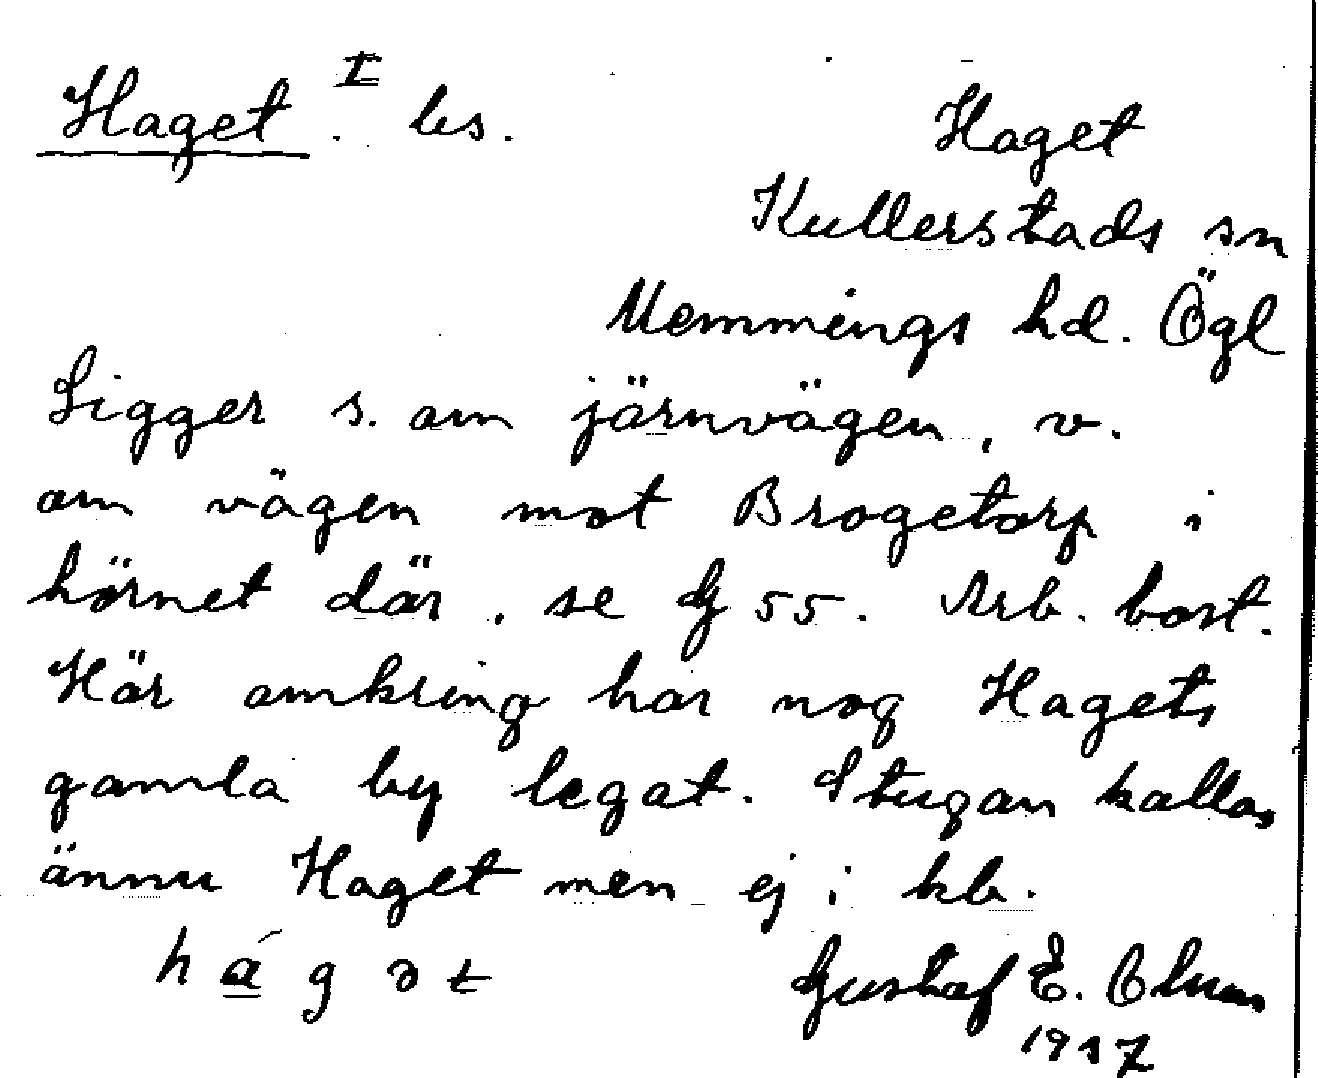 Haget I. bs.
Haget
Kullerstads sn
Memmings hd. Ögl
Ligger s. om järnvägen, v.
om vägen mot Brogetorp i
hörnet där, se G 55. Arb. bost.
Här omkring har nog Hagets
gamla by legat. Stugan kallas
ännu Haget men ej i kb.
há̲gət
Gustaf E.
1917